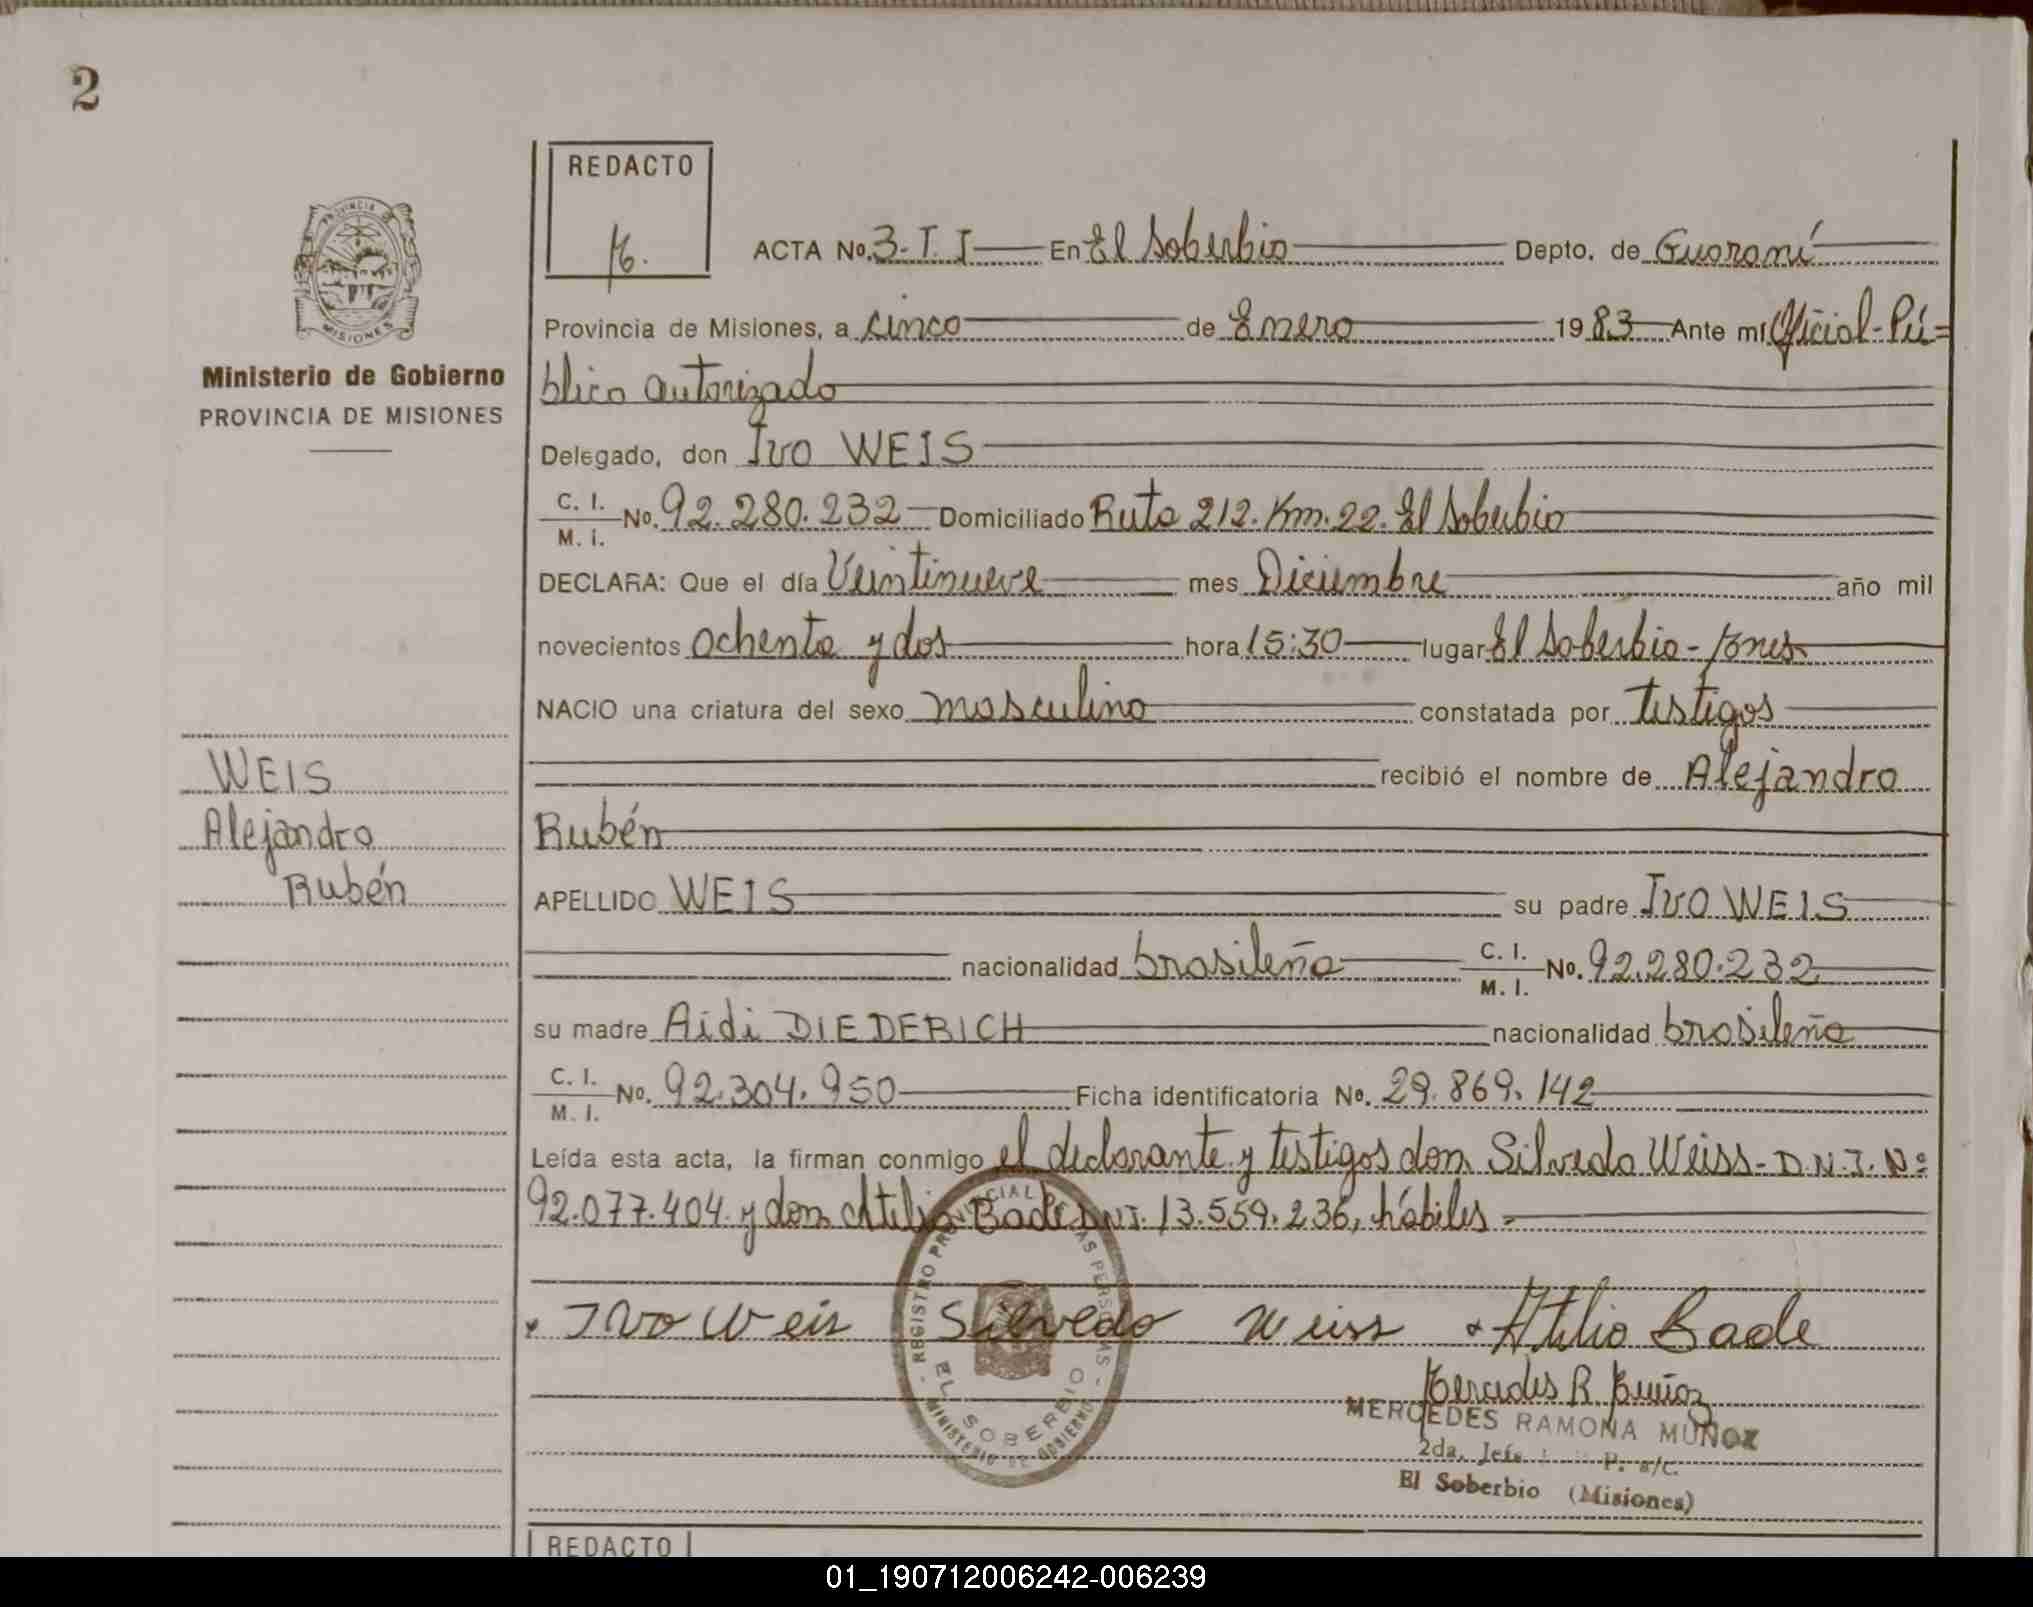 2
REDACTO
PROVINCIA DE
MISIONES
Ministerio de Gobierno
PROVINCIA DE MISIONES
ACTA No. 3-T.I En El Soberbio Depto. de Guaraní
Provincia de Misiones, a cinco de Enero 1983 Ante mí Oficial-Pú=
blico autorizado
Delegado, don Ivo WEIS
C. I.
M. I. No. 92.280.232 Domiciliado Ruta 212. Km. 22. El Soberbio
DECLARA: Que el día Veintinueve mes Diciembre año mil
novecientos ochenta y dos hora 15:30 lugar El Soberbio-
NACIO una criatura del sexo masculino constatada por testigos
recibió el nombre de Alejandro
Rubén
WEIS
Alejandro
Rubén
APELLIDO WEIS su padre Ivo WEIS
nacionalidad brasileña C. I.
M. I. No. 92.280.232
su madre Aidi DIEDERICH nacionalidad brasileña
C. I.
M. I. No. 92.304.950 Ficha identificatoria No. 29.869.142
Leída esta acta, la firman conmigo el declarante y testigos don Silvedo Weiss- D.N.I. Nº
92.077.404 y don Atilio Bade DNI. 13.559.236, hábiles.-
Ivo Weis Silvedo Weiss Atilio Bade
REGISTRO PROVINCIAL DE LAS PERSONAS
EL SOBERBIO
MINISTERIO DE GOBIERNO
Mercedes R. Muñoz
MERCEDES RAMONA MUÑOZ
2da. Jefe P. a/c.
El Soberbio (Misiones)
REDACTO
01_190712006242-006239